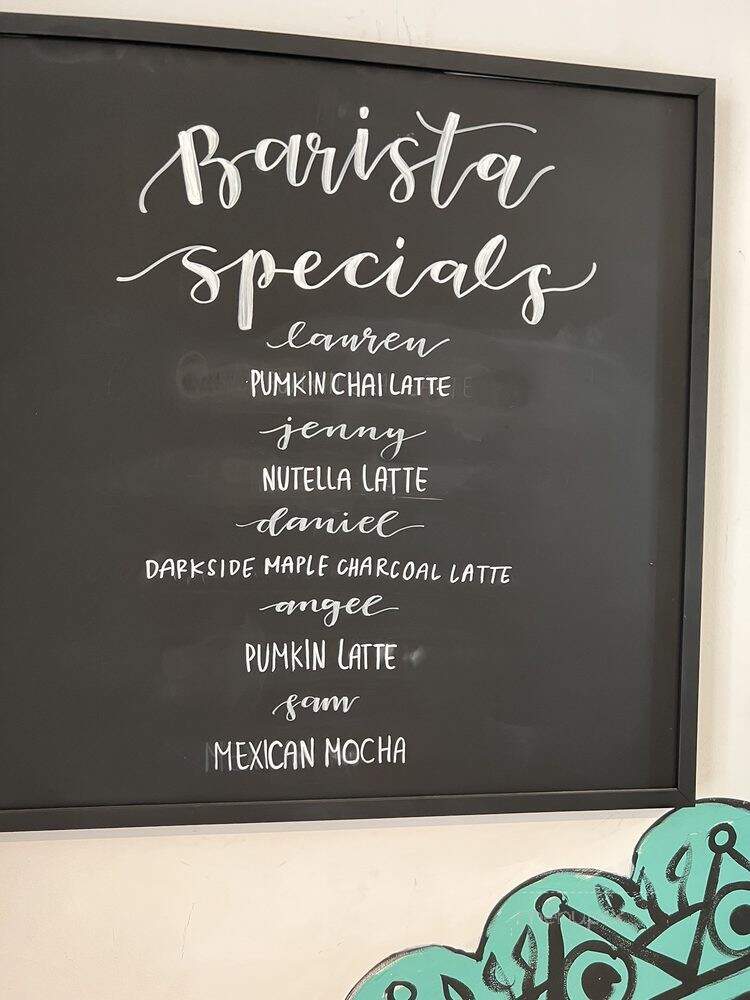 Barista
specials
lauren
PUMKIN CHAI LATTE
jenny
NUTELLA LATTE
daniel
DARKSIDE MAPLE CHARCOAL LATTE
angel
PUMKIN LATTE
sam
MEXICAN MOCHA